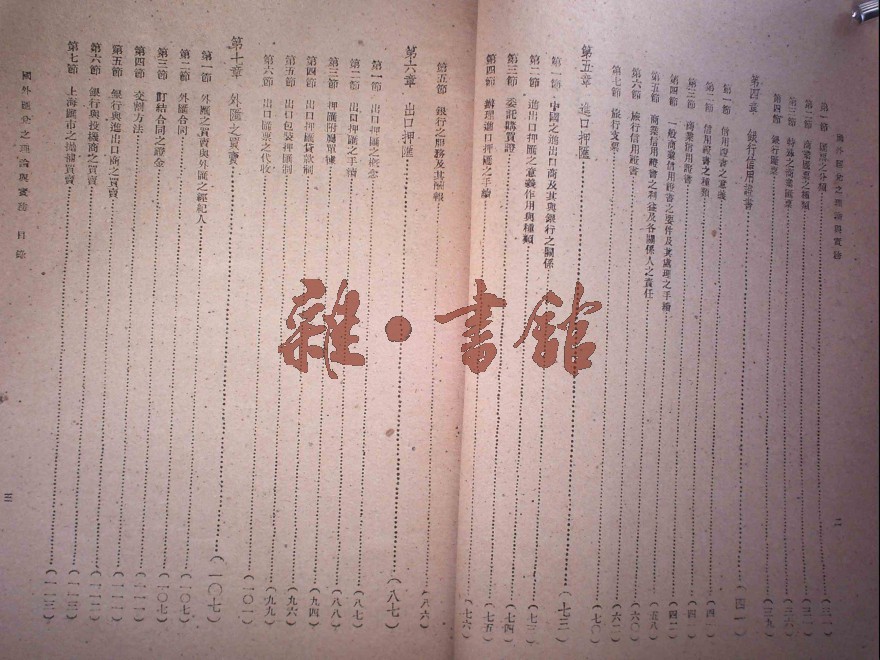 國外匯兌之理論與實務
二
第一節 匯票之分類 (三一)
第二節 商業匯票之種類 (三一)
第三節 特殊之商業匯票 (三六)
第四節 銀行匯票 (三九)
第四章 銀行信用證書 (四一)
第一節 信用證書之意義 (四一)
第二節 信用證書之種類
第三節 商業信用證書
第四節 一般商業信用證書之要件及其處理之手續 (四二)
第五節 商業信用證書之利益及各關係人之責任 (五八)
第六節 旅行信用證書 (六〇)
第七節 旅行支票 (六二)
第五章 進口押匯 (七三)
第一節 中國之進出口商及其與銀行之關係 (七〇)
第二節 進出口押匯之意義作用與種類 (七三)
第三節 委託購買證 (七四)
第四節 辦理進口押匯之手續 (七五)
第五節 銀行之服務及其酬報 (八六)
第六章 出口押匯 (八七)
第一節 出口押匯之概念 (八七)
第二節 出口押匯之手續 (八七)
第三節 押匯附屬單據 (八八)
第四節 出口押匯貸款制 (九四)
第五節 出口包裝押匯制 (九六)
第六節 出口匯票之代收 (九九)
第七章 外匯之買賣 (一〇七)
第一節 外匯之買賣與外匯之經紀人
第二節 外匯合同 (一〇七)
第三節 訂結合同之證金 (一〇七)
第四節 交割方法 (一一一)
第五節 銀行與進出口商之買賣 (一一一)
第六節 銀行與投機商之買賣 (一一二)
第七節 上海匯市之拋補買賣 (一一三)
國外匯兌之理論與實務 目錄
三
雜·書館